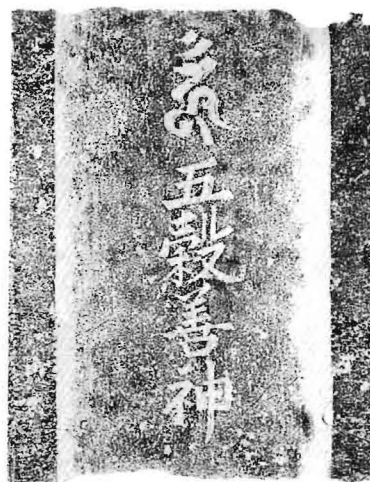 五穀善神